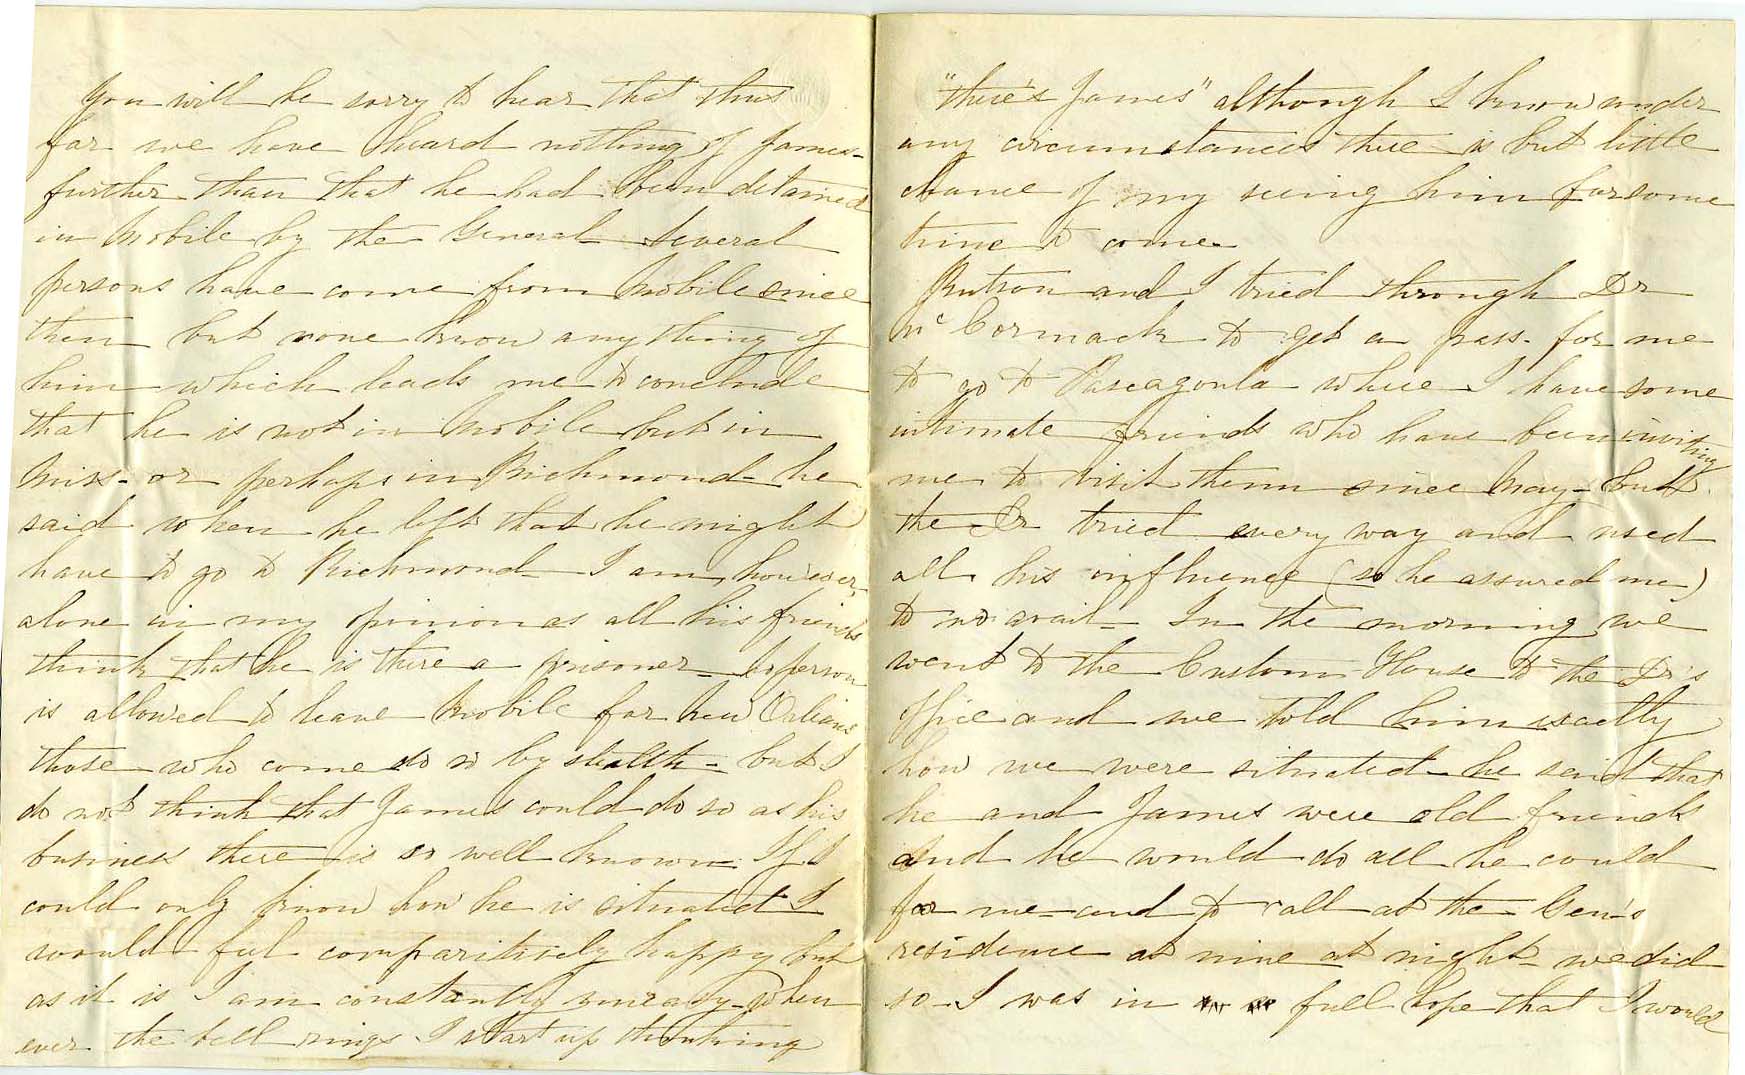 You will be sorry to hear that thus
far we have heard nothing of James-
further than that he had been detained
in Mobile by the General- Several
persons have come from Mobile since
then but none know any thing of
him which leads me to conclude
that he is not in Mobile but in
Miss- or perhaps in Richmond- he
said when he left that he might
have to go to Richmond- I am, however,
alone in my opinion as all his friends
think that he is there a prisoner- No person
is allowed to leave Mobile for New Orleans
those who come do so by stealth- but I
do not think that James could do so as his
business there is so well known- If I
could only know how he is situated I
would feel comparitively happy but
as it is I am constantly uneasy- when
ever the bell rings I start up thinking
"there's James" although I know under
any circumstances there is but little
chance of my seeing him for some
time to come-
Rutson and I tried through Dr
Mc Cormack to get a pass- for me
to go to Pascagoula where I have some
intimate friends who have been inviting
me to visit them since May- but
the Dr tried every way and used
all his influence (so he assured me)
to no avail- In the morning we
went to the Custom House to the Dr's
office and we told him exactly
how we were situated- he said that
he and James were old friends
and he would do all he could
for me- and to call at the Gen's
residence at nine at night- we did
so- I was in full hope that I would